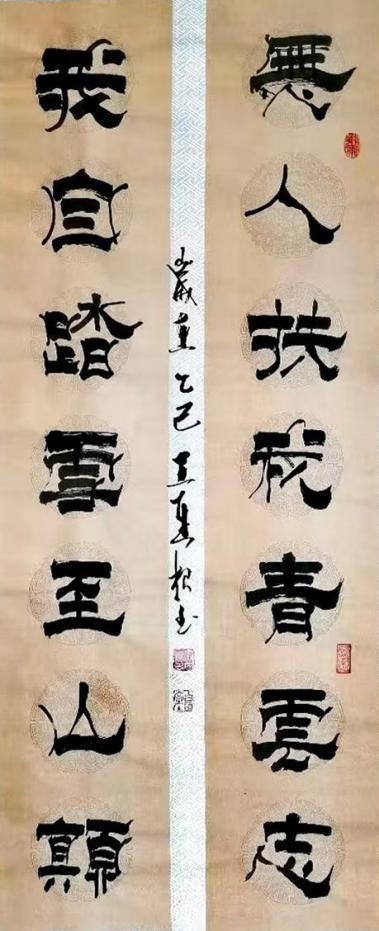 無人扶我青雲志
我自踏雪至山顛
歲在乙巳